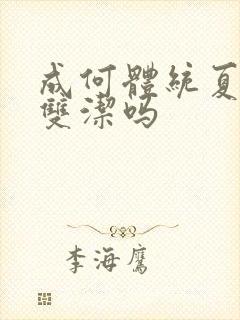 成何體統夏
雙潔吗
李海鷹